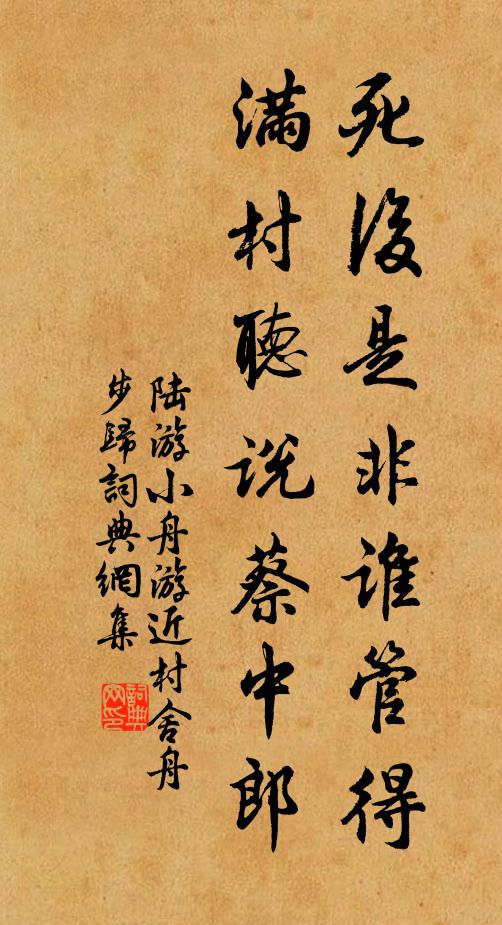 死後是非誰管得
滿村聽説蔡中郎
陆游小舟游近村舍舟
步歸詞典網集
詞典
网印